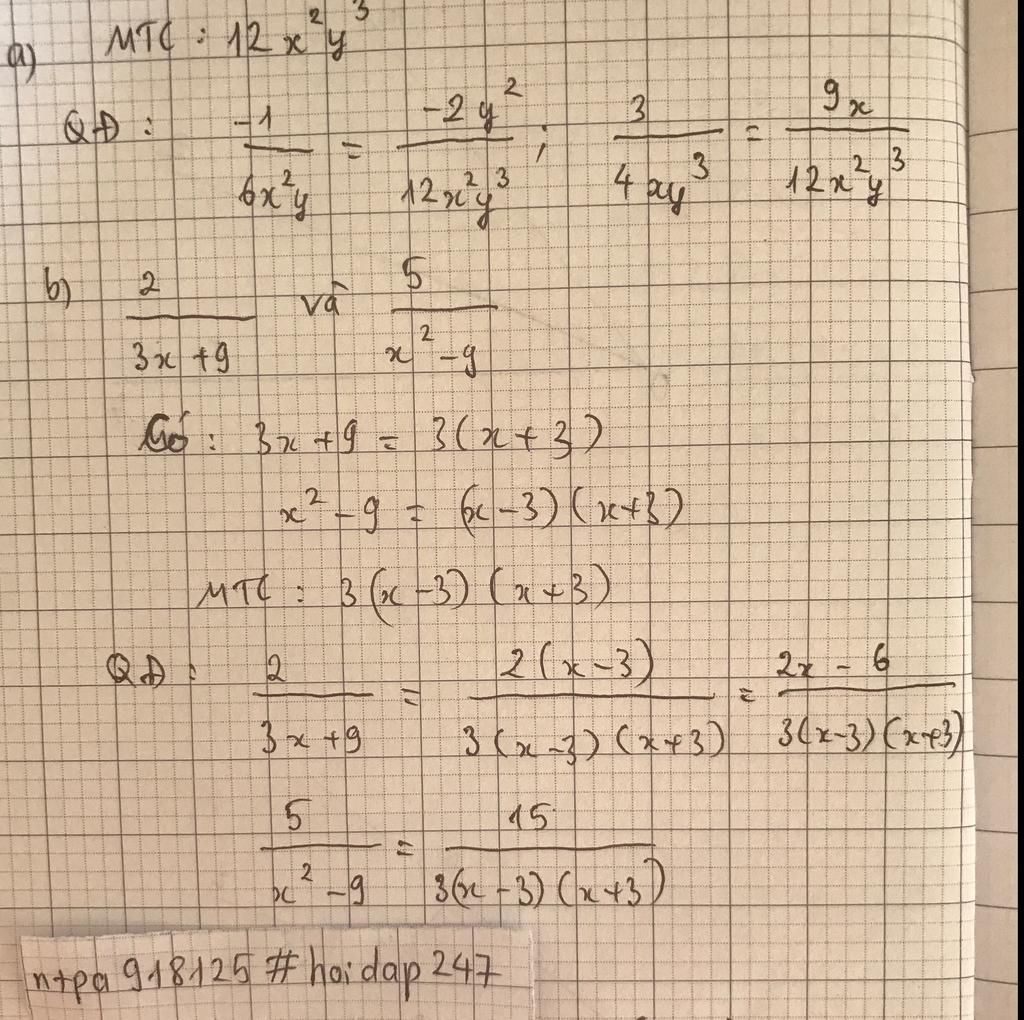 a) MTC : 12x²y³
QĐ : -1/6x²y = -2y²/12x²y³ ; 3/4xy³ = 9x/12x²y³
b) 2/3x+9 và 5/x²-9
Có : 3x+9 = 3(x+3)
x²-9 = (x-3)(x+3)
MTC : 3(x-3)(x+3)
QĐ : 2/3x+9 = 2(x-3)/3(x-3)(x+3) = 2x-6/3(x-3)(x+3)
5/x²-9 = 15/3(x-3)(x+3)
ntpa918125 # hoidap247